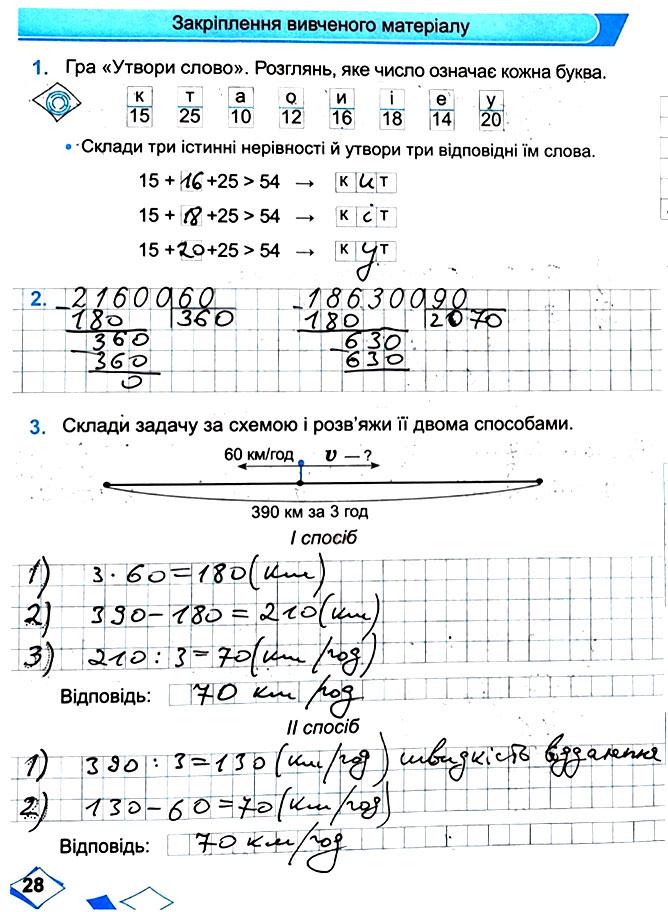 Закріплення вивченого матеріалу
1. Гра «Утвори слово». Розглянь, яке число означає кожна буква.
к т а о и і е у
15 25 10 12 16 18 14 20
• Склади три істинні нерівності й утвори три відповідні їм слова.
15 + 16 +25 > 54 → к и т
15 + 18 +25 > 54 → к і т
15 + 20 +25 > 54 → к у т
2. - 21600 60 - 186300 90
180 360 180 2070
- 360 - 630
360 630
0
3. Склади задачу за схемою і розв’яжи її двома способами.
60 км/год v — ?
390 км за 3 год
I спосіб
1) 3 · 60 = 180 (км)
2) 390 – 180 = 210 (км)
3) 210 : 3 = 70 (км/год)
Відповідь: 70 км/год
II спосіб
1) 390 : 3 = 130 (км/год) швидкість віддалення
2) 130 – 60 = 70 (км/год)
Відповідь: 70 км/год
28